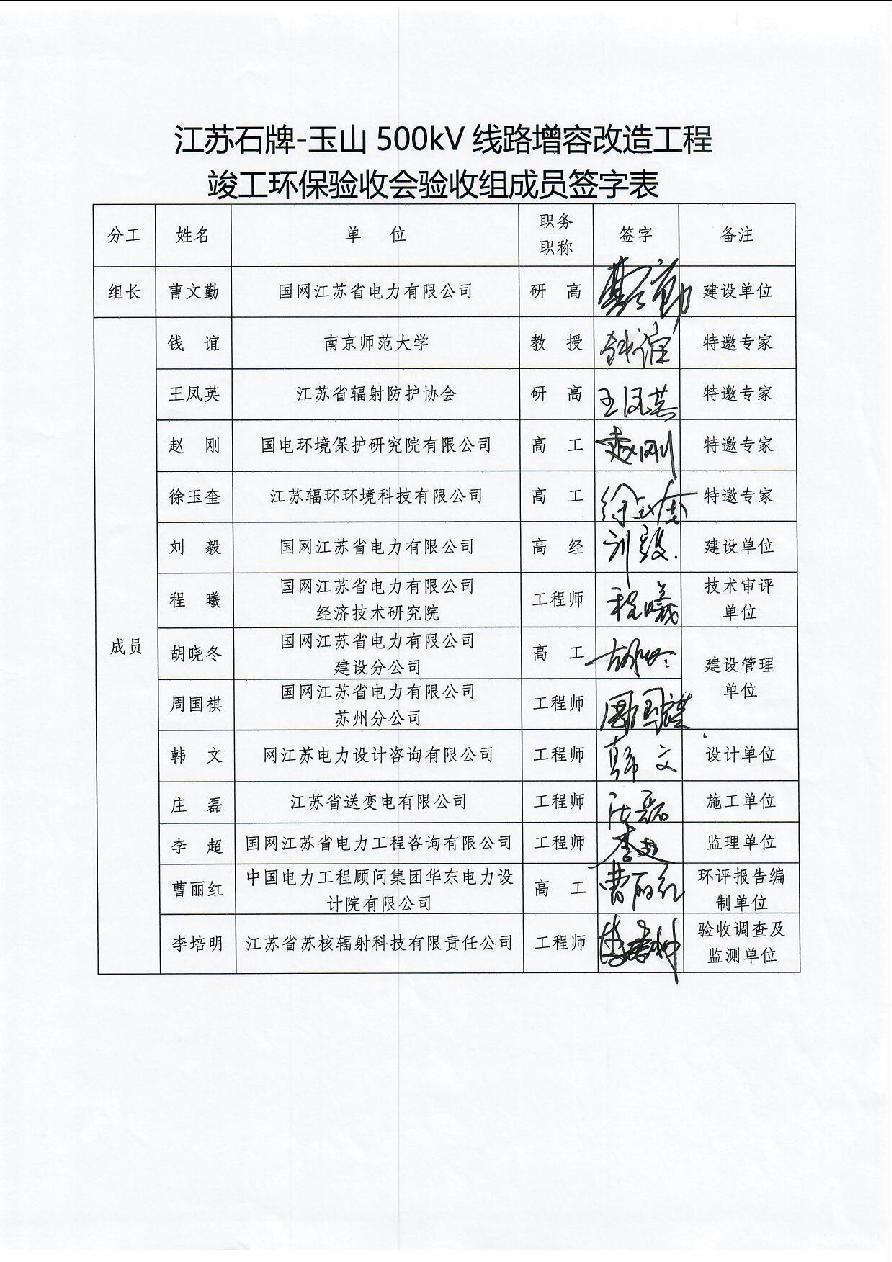 江苏石牌-玉山 500kV 线路增容改造工程
竣工环保验收会验收组成员签字表
分工 姓名 单 位 职务 职称 签字 备注
组长 曹文勤 国网江苏省电力有限公司 研 高 建设单位
成员
钱 谊 南京师范大学 教 授 钱谊 特邀专家
王凤英 江苏省辐射防护协会 研 高 王凤英 特邀专家
赵 刚 国电环境保护研究院有限公司 高 工 赵刚 特邀专家
徐玉奎 江苏辐环环境科技有限公司 高 工 特邀专家
刘 毅 国网江苏省电力有限公司 高 经 刘毅 建设单位
程 曦 国网江苏省电力有限公司 经济技术研究院 工程师 程曦 技术审评 单位
胡晓冬 国网江苏省电力有限公司 建设分公司 高 工 建设管理 单位
周国棋 国网江苏省电力有限公司 苏州分公司 工程师 周国棋
韩 文 网江苏电力设计咨询有限公司 工程师 韩文 设计单位
庄 磊 江苏省送变电有限公司 工程师 施工单位
李 超 国网江苏省电力工程咨询有限公司 工程师 李超 监理单位
曹丽红 中国电力工程顾问集团华东电力设 计院有限公司 高 工 曹丽红 环评报告编 制单位
李培明 江苏省苏核辐射科技有限责任公司 工程师 验收调查及 监测单位